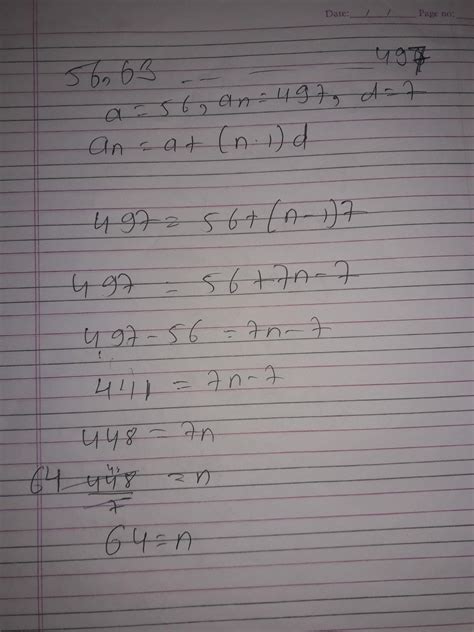 Date: __/__/__ Page no:
56, 63 -- -- 497
a = 56, an = 497, d = 7
an = a + (n-1)d
497 = 56 + (n-1)7
497 = 56 + 7n - 7
497 - 56 = 7n - 7
441 = 7n - 7
448 = 7n
64 448/7 = n
64 = n